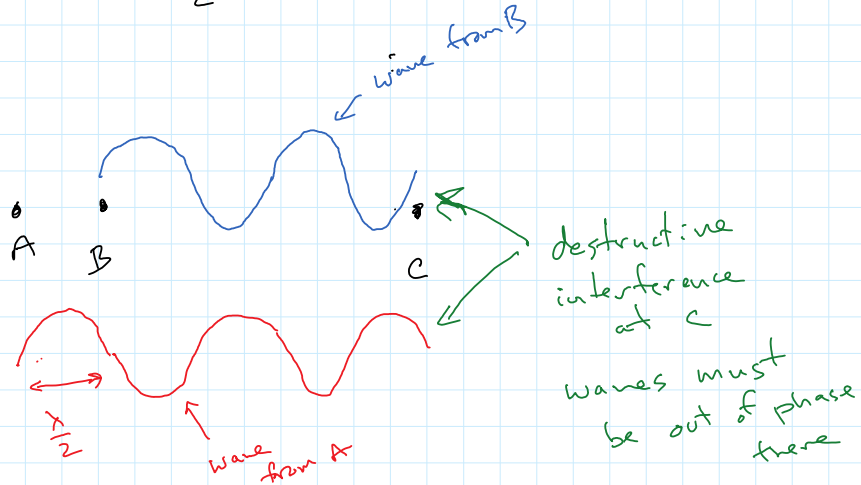 wave from B
A
B
C
destructive
interference
at C
waves must
be out of phase
there
λ/2
wave
from A